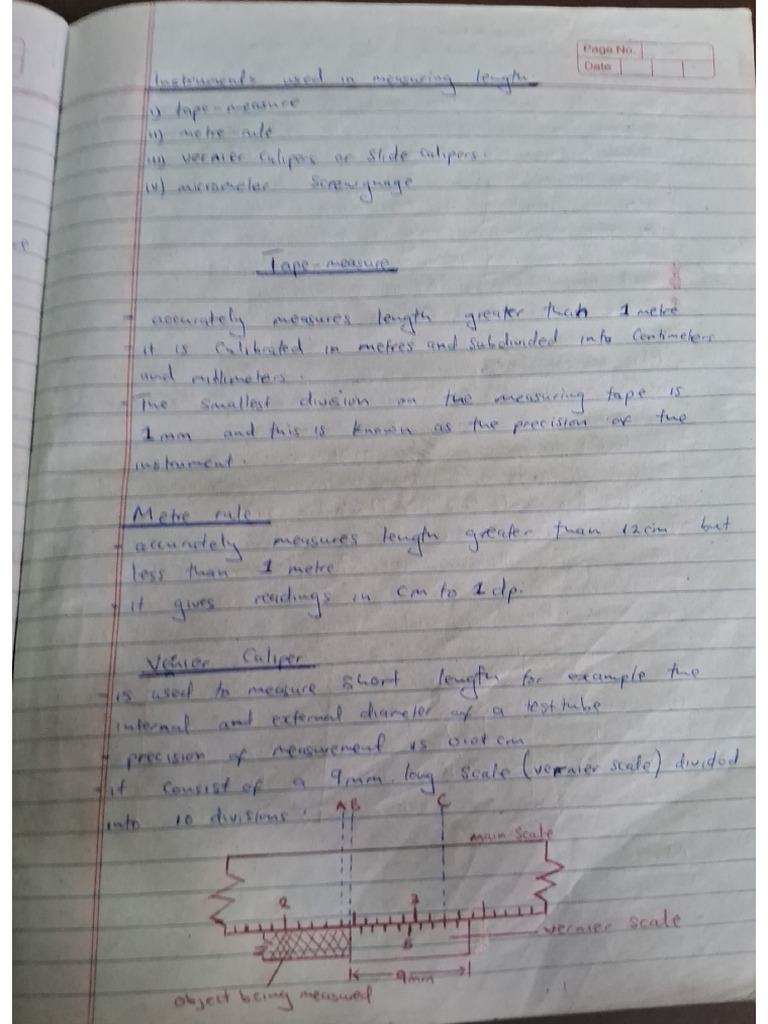 Page No.
Date
Instruments used in measuring length.
i) tape-measure
ii) metre-rule
iii) vernier calipers or slide calipers.
iv) micrometer screwguage
Tape-measure
- accurately measures length greater than 1 metre
- it is calibrated in metres and subdivided into centimeters
and millimeters.
- The smallest division on the measuring tape is
1mm and this is known as the precision of the
instrument.
Metre rule.
- accurately measures length greater than 12cm but
less than 1 metre
- it gives readings in cm to 1dp.
Venier Caliper
- is used to measure short length for example the
internal and external diameter of a test tube
- precision of measurement is 0.01cm
- it consist of a 9mm long scale (vernier scale) divided
into 10 divisions.
A B C
main scale
2 3
5
vernier scale
9mm
object being measured